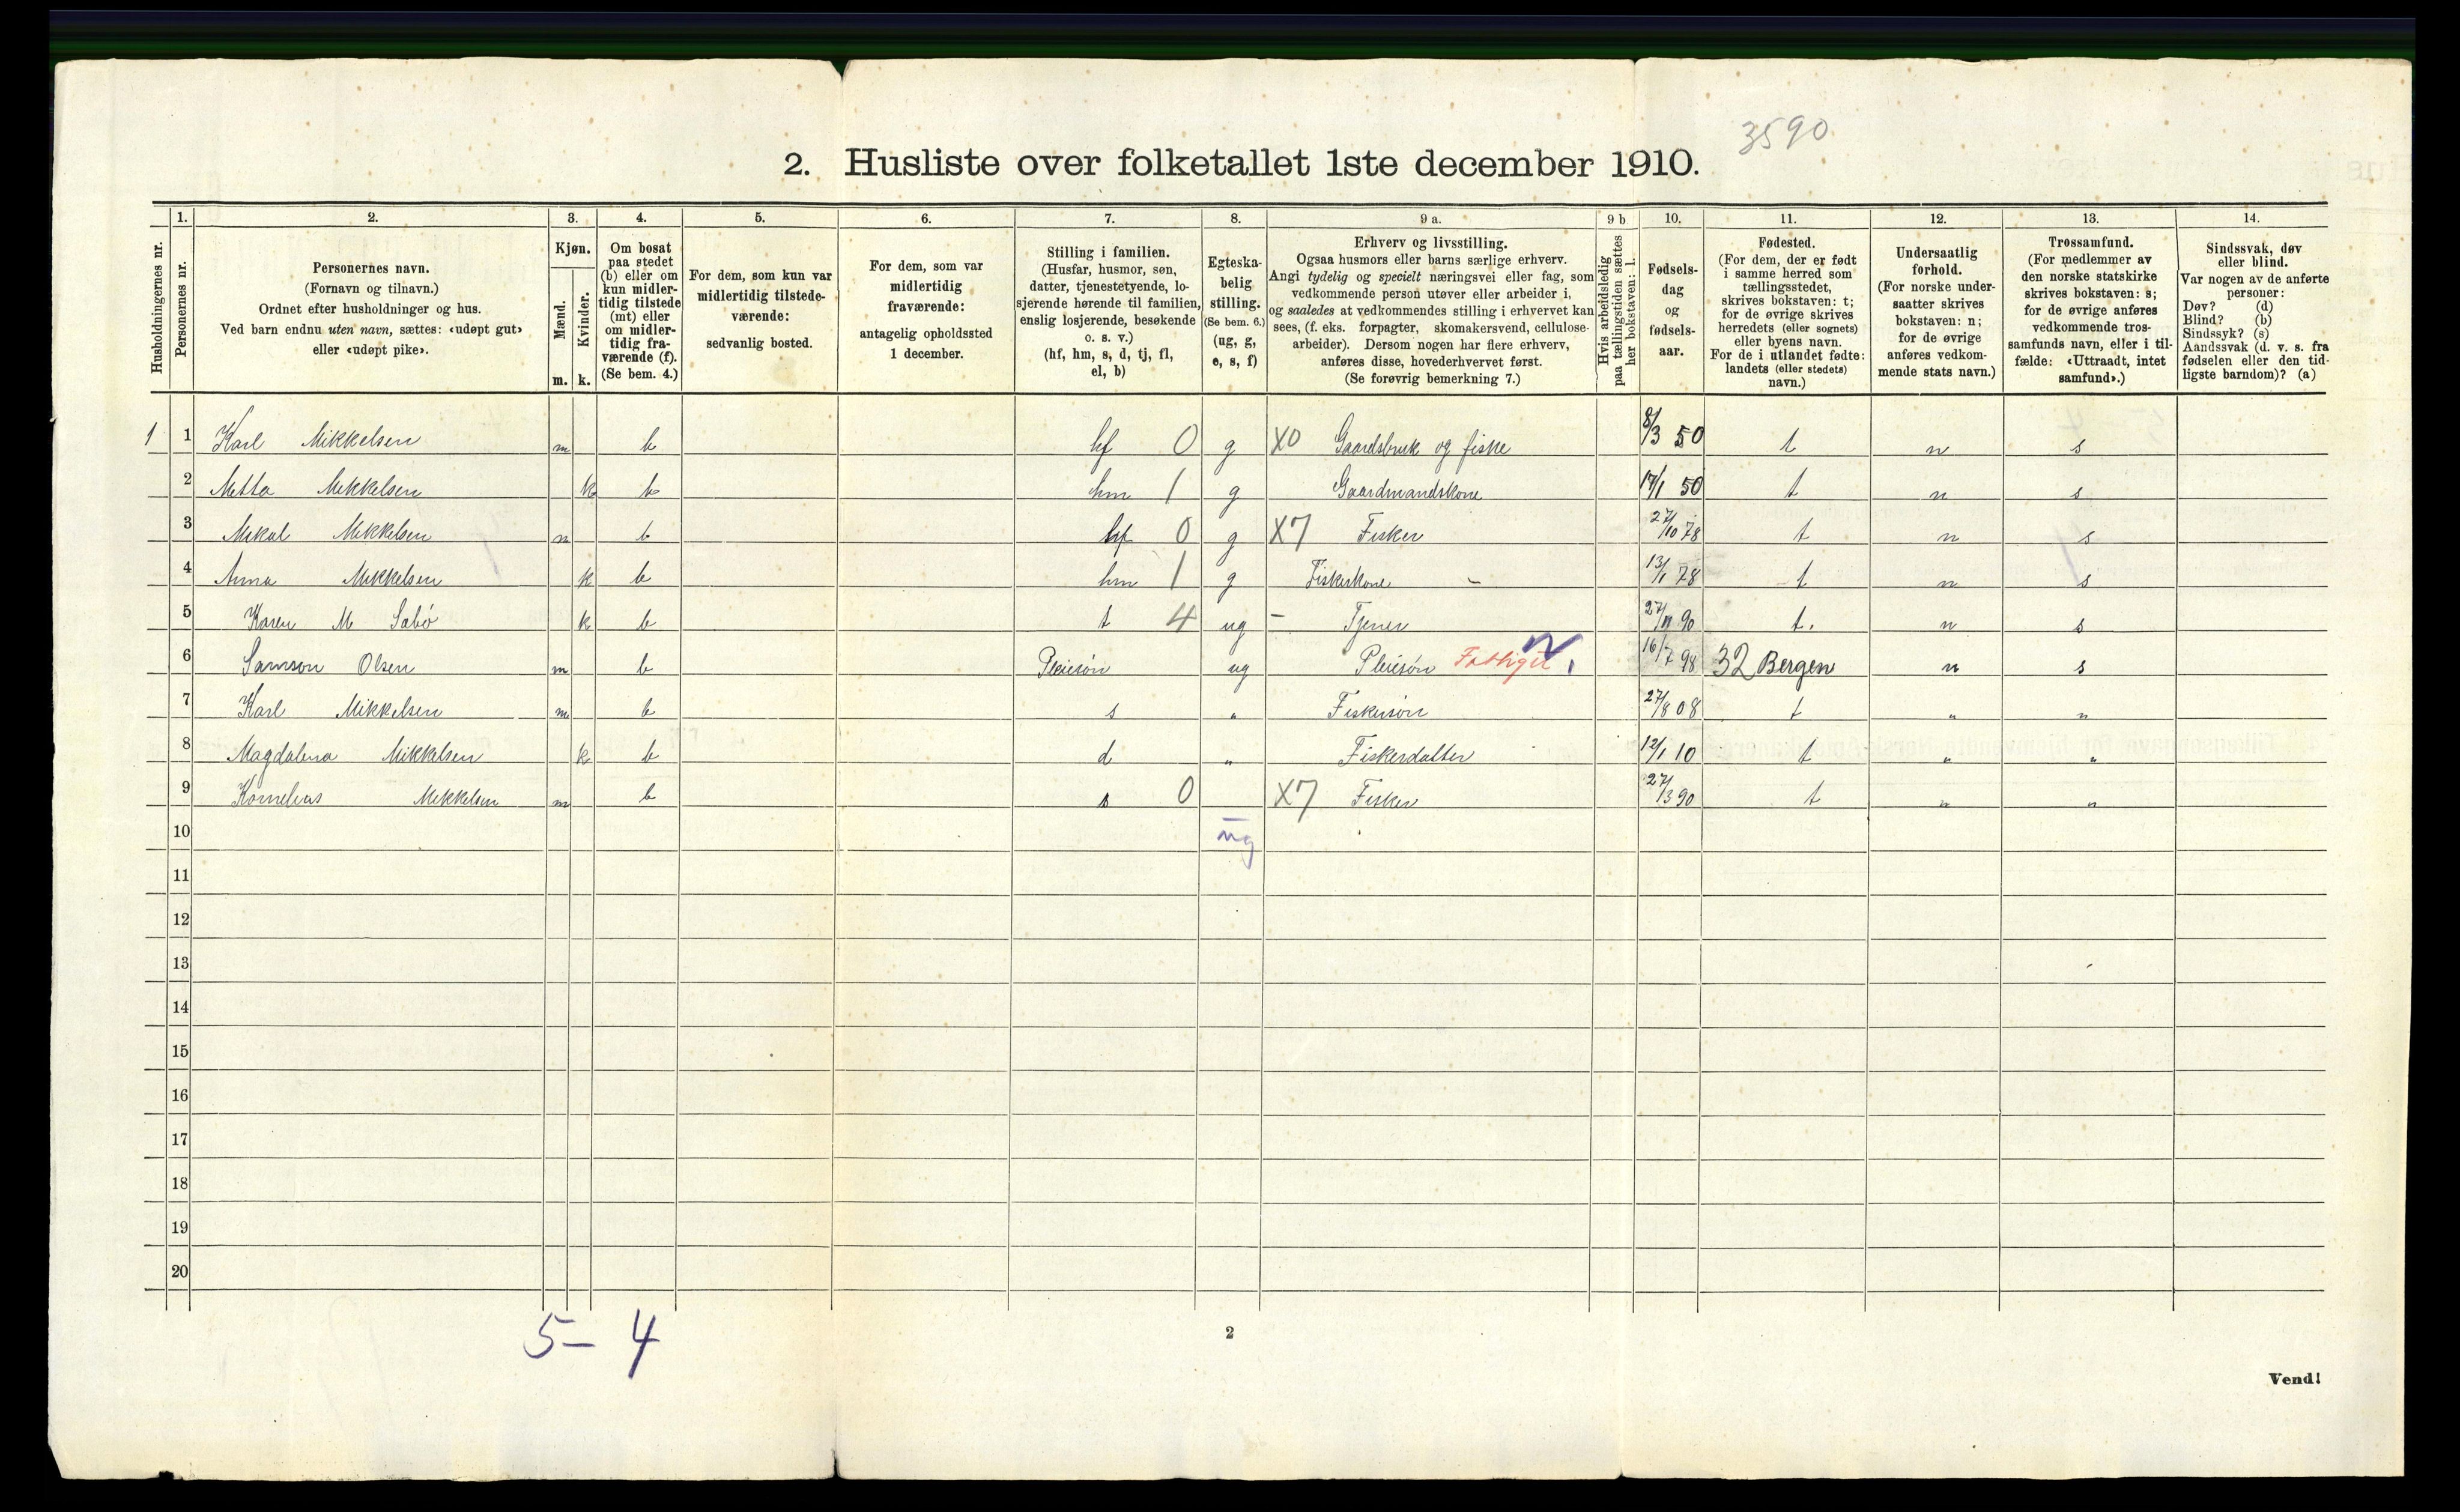 3590
2. Husliste over folketallet 1ste december 1910.
Husholdningernes nr.
1.
Personernes nr.
2.
Personernes navn.
(Fornavn og tilnavn.)
Ordnet efter husholdninger og hus.
Ved barn endnu uten navn, sættes: «udøpt gut»
eller «udøpt pike».
3.
Kjøn.
Mænd.
Kvinder.
m. k.
4.
Om bosat
paa stedet
(b) eller om
kun midler-
tidig tilstede
(mt) eller
om midler-
tidig fra-
værende (f).
(Se bem. 4.)
5.
For dem, som kun var
midlertidig tilstede-
værende:
sedvanlig bosted.
6.
For dem, som var
midlertidig
fraværende:
antagelig opholdssted
1 december.
7.
Stilling i familien.
(Husfar, husmor, søn,
datter, tjenestetyende, lo-
sjerende hørende til familien,
enslig losjerende, besøkende
o. s. v.)
(hf, hm, s, d, tj, fl,
el, b)
8.
Egteska-
belig
stilling.
(Se bem. 6.)
(ug, g,
e, s, f)
9 a.
Erhverv og livsstilling.
Ogsaa husmors eller barns særlige erhverv.
Angi tydelig og specielt næringsvei eller fag, som
vedkommende person utøver eller arbeider i,
og saaledes at vedkommendes stilling i erhvervet kan
sees, (f. eks. forpagter, skomakersvend, cellulose-
arbeider). Dersom nogen har flere erhverv,
anføres disse, hovederhvervet først.
(Se forøvrig bemerkning 7.)
9 b
Hvis arbeidsledig
paa tællingstiden sættes
her bokstaven: l.
10.
Fødsels-
dag
og
fødsels-
aar.
11.
Fødested.
(For dem, der er født
i samme herred som
tællingsstedet,
skrives bokstaven: t;
for de øvrige skrives
herredets (eller sognets)
eller byens navn.
For de i utlandet fødte:
landets (eller stedets)
navn.)
12.
Undersaatlig
forhold.
(For norske under-
saatter skrives
bokstaven: n;
for de øvrige
anføres vedkom-
mende stats navn.)
13.
Trossamfund.
(For medlemmer av
den norske statskirke
skrives bokstaven: s;
for de øvrige anføres
vedkommende tros-
samfunds navn, eller i til-
fælde: «Uttraadt, intet
samfund».)
14.
Sindssvak, døv
eller blind.
Var nogen av de anførte
personer:
Døv? (d)
Blind? (b)
Sindssyk? (s)
Aandssvak (d. v. s. fra
fødselen eller den tid-
ligste barndom)? (a)
1 1 Karl Mikkelsen m b hf 0 g X0 Gaardsbruk og fiske 8/3 50 t n s
2 Metta Mikkelsen k b hm 1 g Gaardmandskone 17/1 50 t n s
3 Mikal Mikkelsen m b hf 0 g X7 Fisker 27/10 78 t n s
4 Anna Mikkelsen k b hm 1 g Fiskerkone - 13/1 78 t n s
5 Karen M Sabö k b t 4 ug - Tjener 27/11 90 t. n s
6 Samson Olsen m b Pleiesön ug Pleiesön 16/7 98 32 Bergen n s
7 Karl Mikkelsen m b s " Fiskersön 27/8 08 t " "
8 Magdalena Mikkelsen k b d " Fiskerdatter 12/1 10 t " "
9 Kornelius Mikkelsen m b s 0 X7 Fisker 27/3 90 t " "
10 ug
11
12
13
14
15
16
17
18
19
20
5- 4
2
Vend!